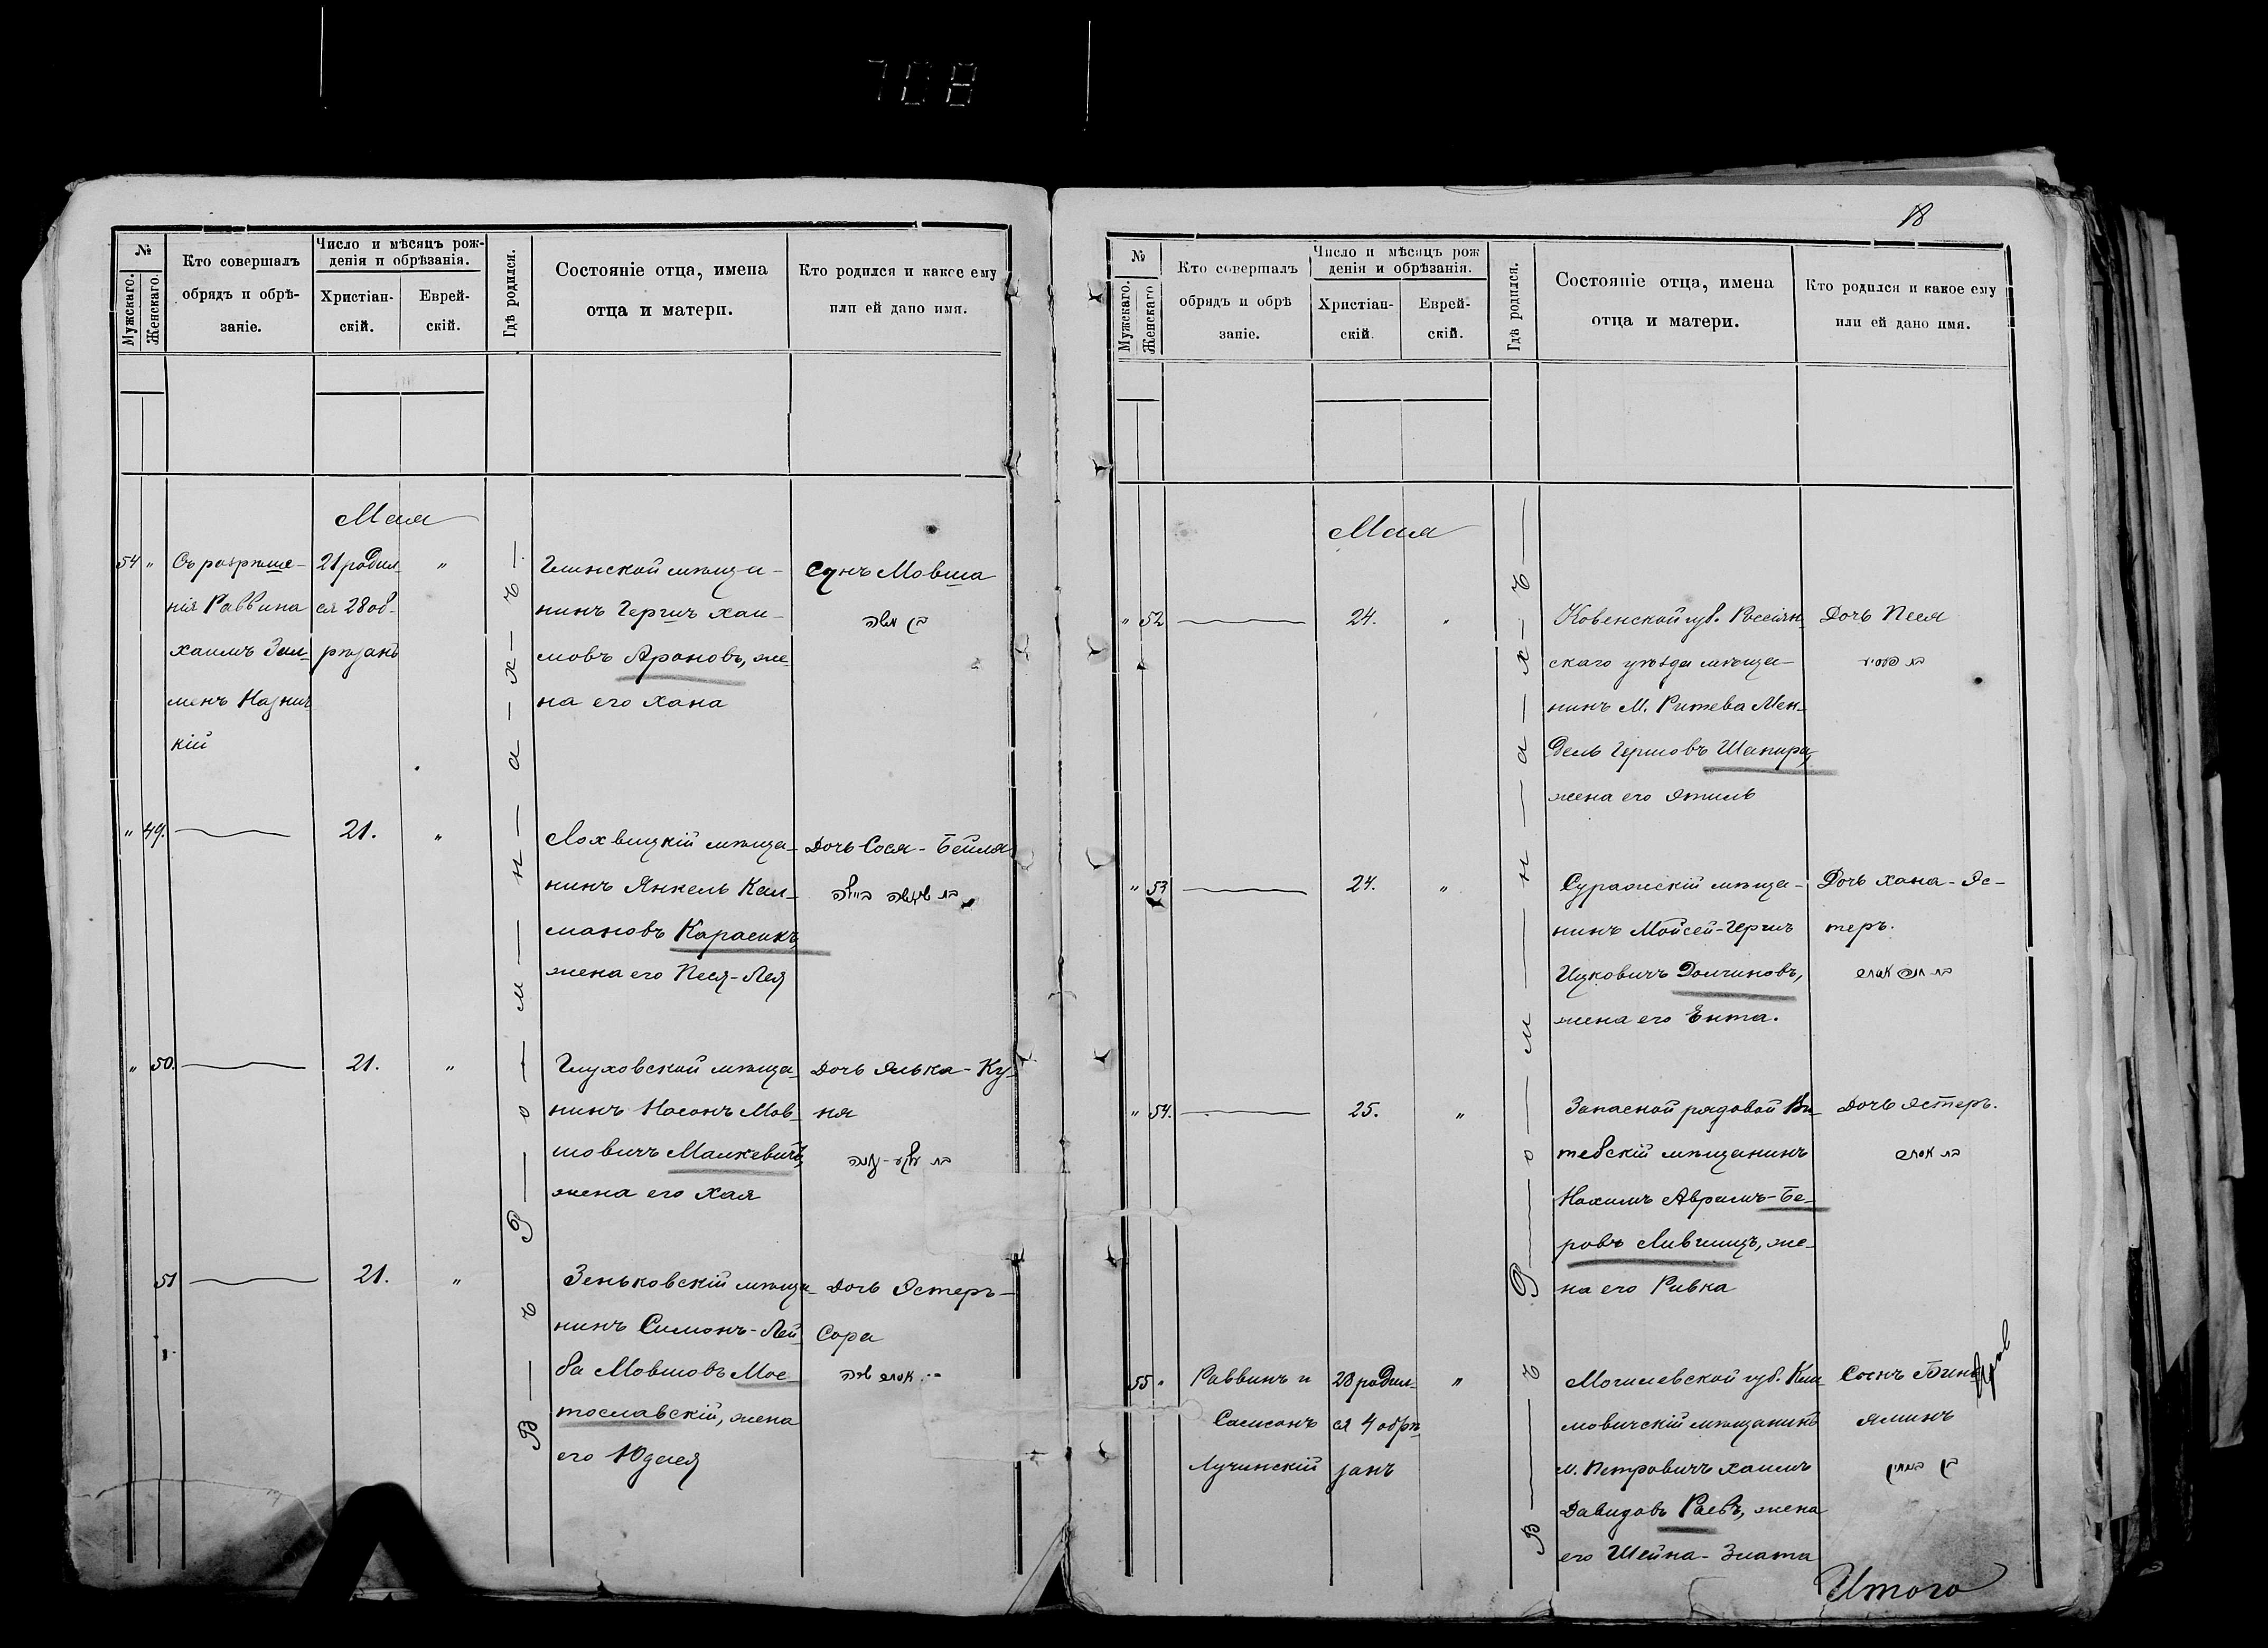 708
№
Мужскаго.
Женскаго.
Кто совершалъ
обрядъ и обрѣ-
заніе.
Число и мѣсяцъ рож-
денія и обрѣзанія.
Христіан-
скій.
Еврей-
скій.
Гдѣ родился.
Состояніе отца, имена
отца и матери.
Кто родился и какое ему
или ей дано имя.
Мая
54 "
Съ разрѣше-
нія Раввина
Хаимъ Зал-
менъ
кій
21 родил-
ся 28 об-
рѣзанъ
"
Въ Ромнахъ
Глинской мѣща-
нинъ Гершъ Хаи-
мовъ Ароновъ, же-
на его Хана
Сынъ Мовша
בן משה
" 49.
21.
"
Лохвицкій мѣща-
нинъ Янкель Кал-
мановъ Карасикъ,
жена его Песя-Лея
Дочь Сося-Бейля
" 50.
21.
"
Глуховской мѣща-
нинъ Носонъ Мов-
шовичъ Малкевичъ,
жена его Хая
Дочь Элька-Ку-
ня
51
21.
"
Зеньковскій мѣща-
нинъ Симонъ-Лей-
ба Мовшовъ Мос-
тославскій, жена
его Юдлея
Дочь Эстеръ-
Сора
18
№
Мужскаго.
Женскаго
Кто совершалъ
обрядъ и обрѣ
заніе.
Число и мѣсяцъ рож
денія и обрѣзанія.
Христіан-
скій.
Еврей-
скій.
Гдѣ родился.
Состояніе отца, имена
отца и матери.
Кто родился и какое ему
или ей дано имя.
Мая
" 52
24.
"
Въ Ромнахъ
Ковенской губ. Россіян-
скаго уѣзда мѣща-
нинъ М. Ритева Мен-
дель Гершовъ Шапира,
жена его Этиль
Дочь Песя
" 53
24.
"
Суражскій мѣща-
нинъ Мойсей-Гершъ
Ицковичъ Долчиновъ,
жена его Ента.
Дочь Хана-Эс-
теръ.
" 54.
25.
"
Запасной рядовой Ви-
тебскій мѣщанинъ
Нохимъ Аврамъ-Бе-
ровъ Лившицъ, же-
на его Ривка
Дочь Эстеръ.
55 "
Раввинъ и
Самсонъ
Лучинскій
28 родил-
ся 4 обрѣ-
занъ
"
Могилевской губ. Кли-
мовичскій мѣщанинъ
м. Петровичъ Хаимъ
Давидовъ Раевъ, жена
его Шейна-Злата
Сынъ Бинь-
яминъ
Итого